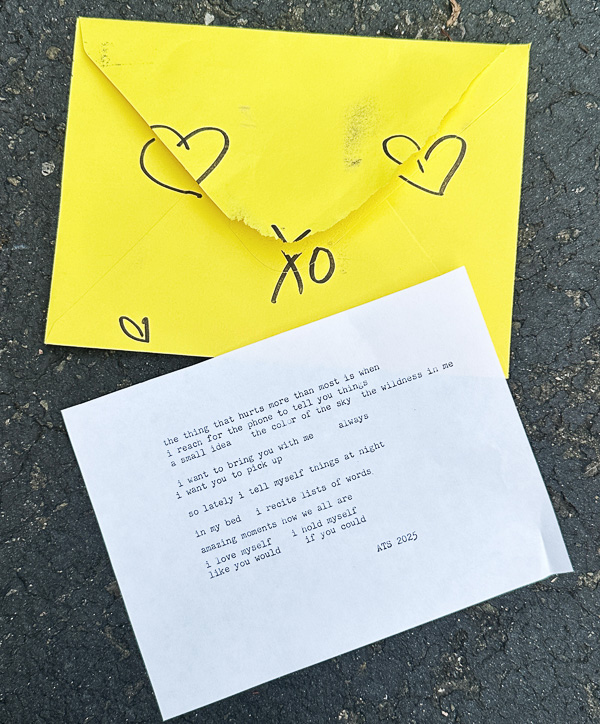 XO
the thing that hurts more than most is when
i reach for the phone to tell you things
a small idea the color of the sky the wildness in me
i want to bring you with me always
i want you to pick up
so lately i tell myself things at night
in my bed i recite lists of words
amazing moments how we all are
i love myself i hold myself
like you would if you could
ATS 2025